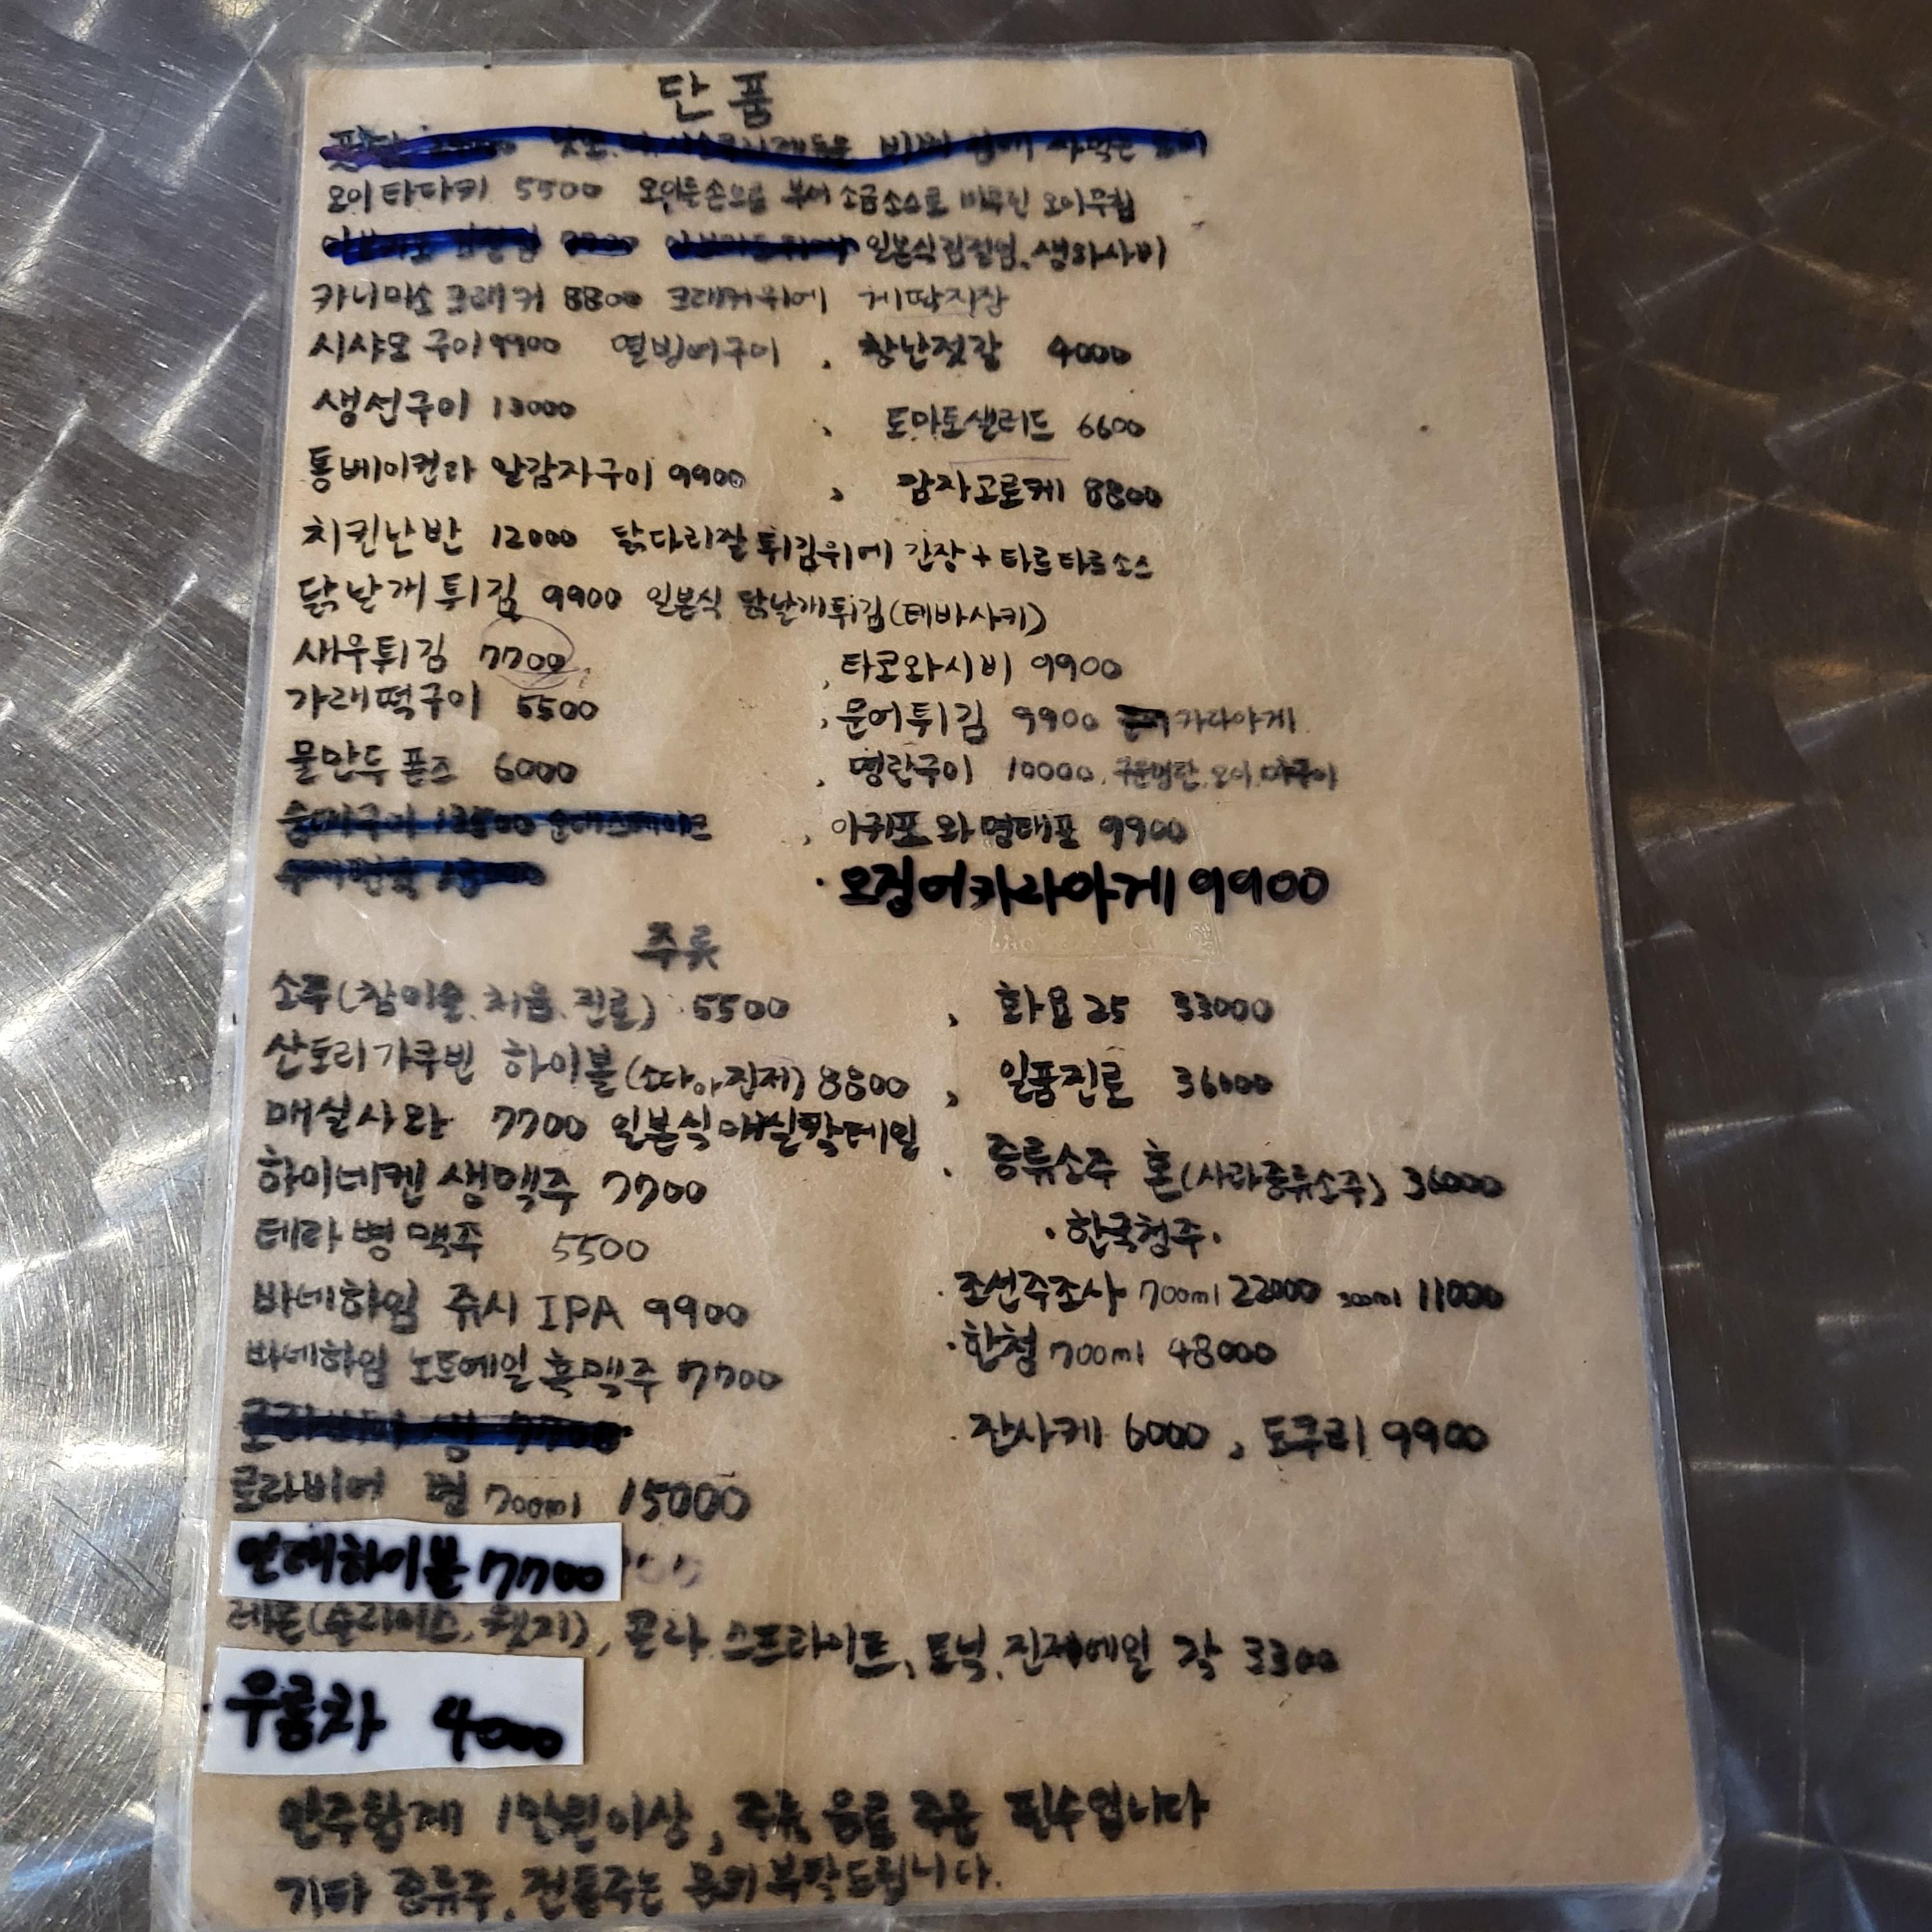 단품
오이타타키 5500 오이를 손으로 부어 소금소스로 버무린 오이무침
일본식김절임, 생와사비
카니미소 크래커 8800 크래커위에 게딱지장
시샤모 구이 9900 열빙어구이 , 창난젓갈 4000
생선구이 13000 , 토마토샐러드 6600
통베이컨과 알감자구이 9900 , 감자고로케 8800
치킨난반 12000 닭다리살 튀김위에 간장 + 타르타르소스
닭날개튀김 9900 일본식 닭날개튀김(테바사키)
새우튀김 7700 , 타코와사비 9900
가래떡구이 5500 , 문어튀김 9900 카라아게
물만두 폰즈 6000 , 명란구이 10000, 구운명란, 오이,
, 아귀포와 명태포 9900
· 오징어카라아게 9900
주류
소주(참이슬, 처음, 진로) 5500 , 화요25 33000
산토리가쿠빈 하이볼(소다or진저) 8800 , 일품진로 36000
매실사와 7700 일본식매실칵테일
하이네켄 생맥주 7700 · 증류소주 혼(사과증류소주) 36000
테라 병맥주 5500 ·한국청주·
바네하임 쥬시 IPA 9900 · 조선주조사 700ml 22000 300ml 11000
바네하임 노트에일 흑맥주 7700 · 한청 700ml 48000
· 잔사케 6000 , 도쿠리 9900
병 700ml 15000
하이볼 7700
레몬(슬라이스, 웻지), 콜라, 스프라이트, 토닉, 진저에일 각 3300
우롱차 4000
안주합계 1만원이상, 주류 음료 주문 필수입니다
기타 증류주, 전통주는 문의부탁드립니다.